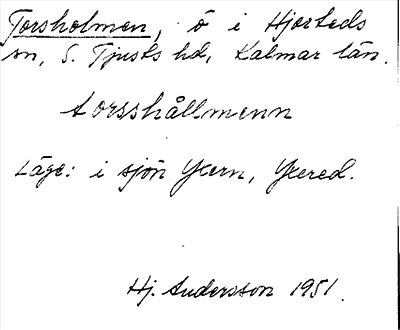 Torsholmen, ö i Hjorteds
sn, S. Tjusts hd, Kalmar län.
torsshållmenn
Läge: i sjön Yxern, Yxered.
Hj. Andersson 1951.